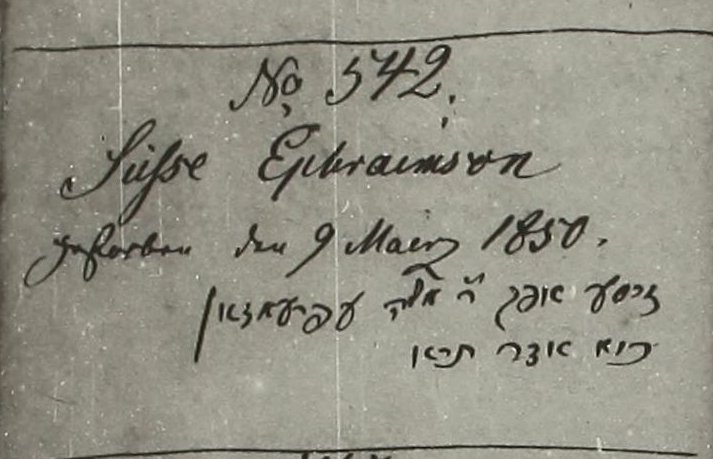 No 542.
Süsse Ephraimson
gestorben den 9 Maerz 1850.
זיסע עפרימזאן
אדר